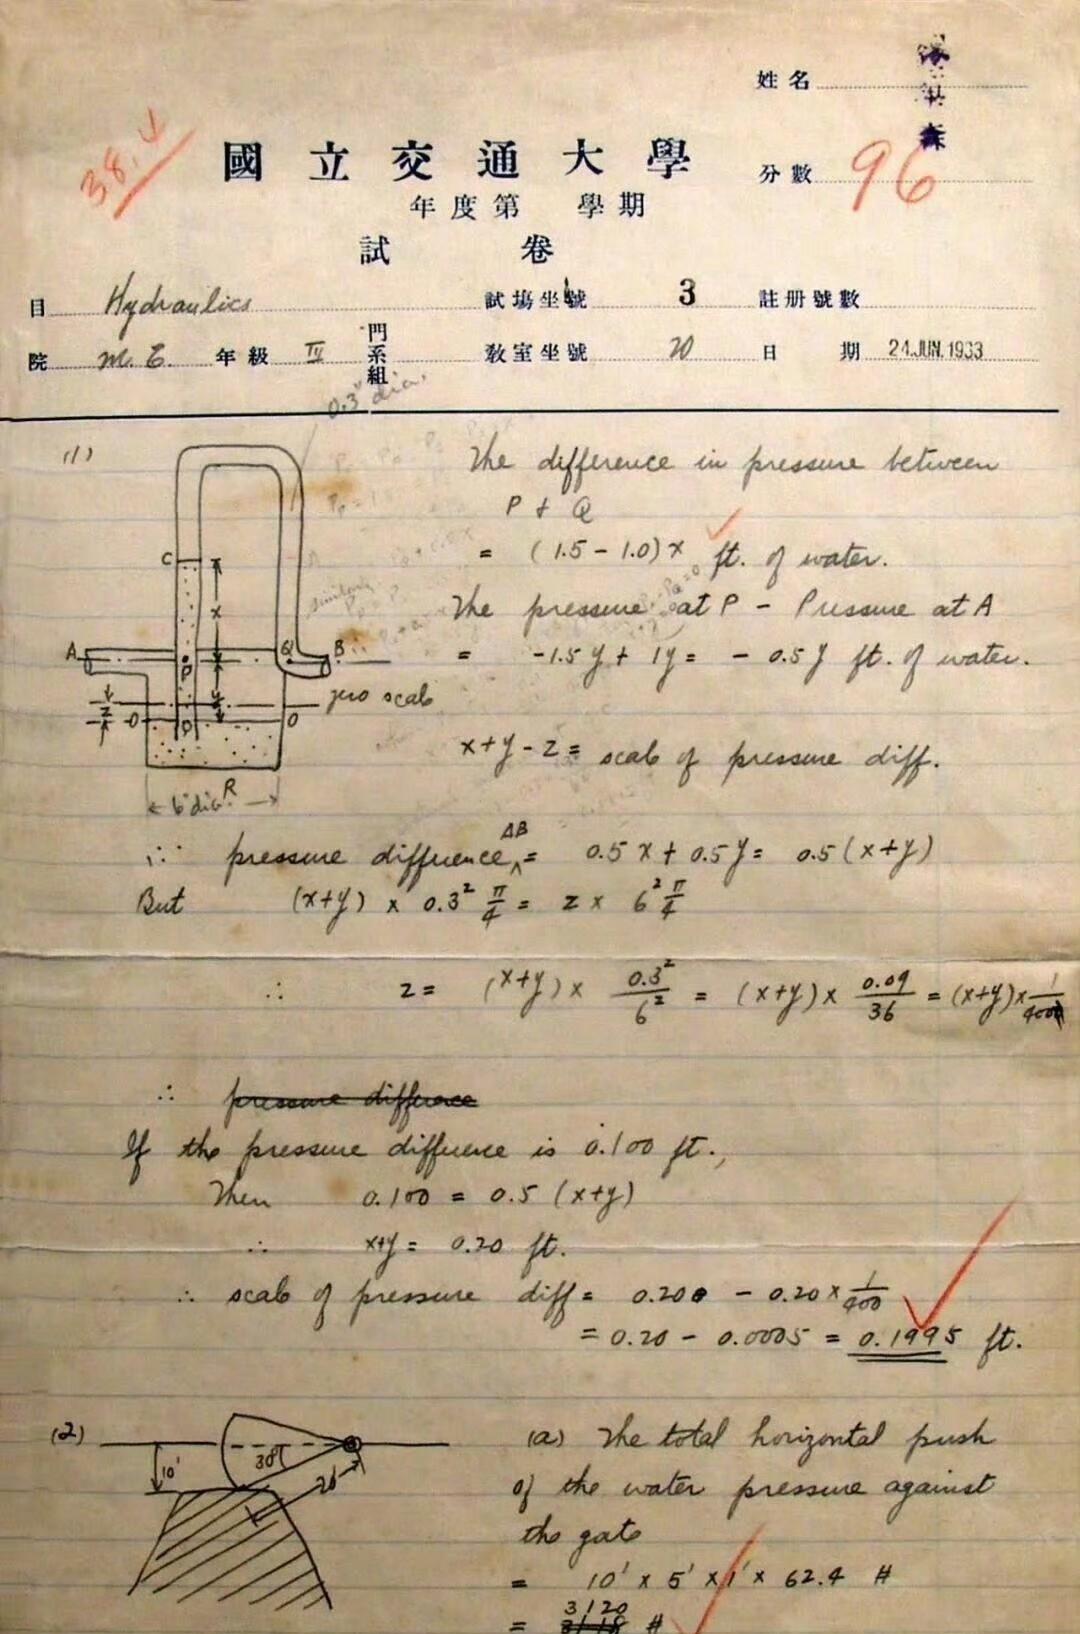 姓名
38.4
國立交通大學
分數 96
年度第 學期
試 卷
目 Hydraulics 試場坐號 3 註册號數
院 M.E. 年級 IV 門系組 教室坐號 20 日期 24.JUN.1933
0.3" dia.
(1)
The difference in pressure between
P + Q
= (1.5 - 1.0)x ft. of water.
C
x
The pressure at P - Pressure at A
A P Q B
= -1.5y + 1y = - 0.5y ft. of water.
y
zero scale
z O D O
x+y-z = scale of pressure diff.
R
6" dia.
∴ pressure difference AB = 0.5x + 0.5y = 0.5(x+y)
But (x+y) × 0.3² π/4 = z × 6² π/4
∴ z = (x+y) × 0.3²/6² = (x+y) × 0.09/36 = (x+y) × 1/400
∴ pressure difference
If the pressure difference is 0.100 ft.,
Then 0.100 = 0.5 (x+y)
∴ x+y = 0.20 ft.
∴ scale of pressure diff = 0.200 - 0.20 × 1/400
= 0.20 - 0.0005 = 0.1995 ft.
(2)
10' 30° 20'
(a) The total horizontal push
of the water pressure against
the gate
= 10' × 5' × 1' × 62.4 #
= 3120 #